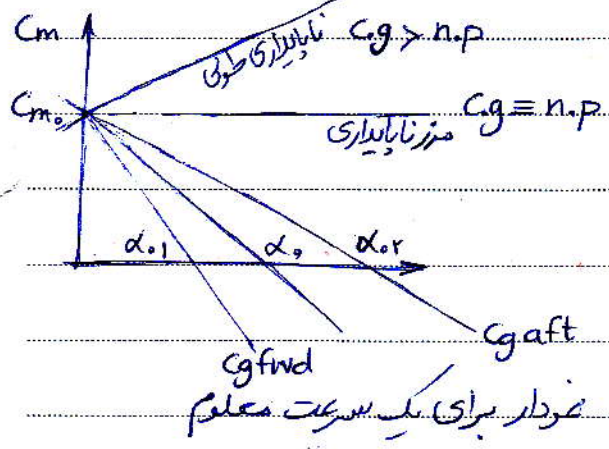 Cm
ناپایداری طولی
c.g > n.p
Cm₀
c.g ≡ n.p
مرز ناپایداری
α₀۱
α₀
α₀۲
cg aft
cg fwd
نمودار برای یک سرعت معلوم